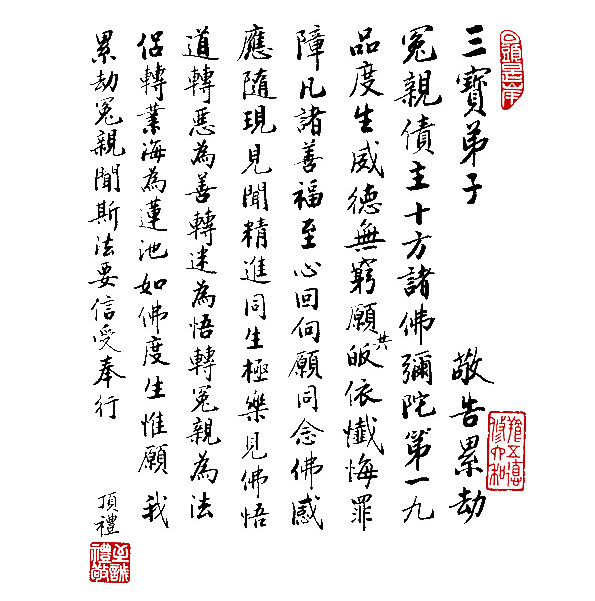 三寶弟子 敬告累劫
冤親債主十方諸佛彌陀第一九
品度生威德無窮願共皈依懺悔罪
障凡諸善福至心回向願同念佛感
應隨現見聞精進同生極樂見佛悟
道轉惡為善轉迷為悟轉冤親為法
侶轉業海為蓮池如佛度生惟願 我
累劫冤親聞斯法要信受奉行
頂禮
至誠禮敬